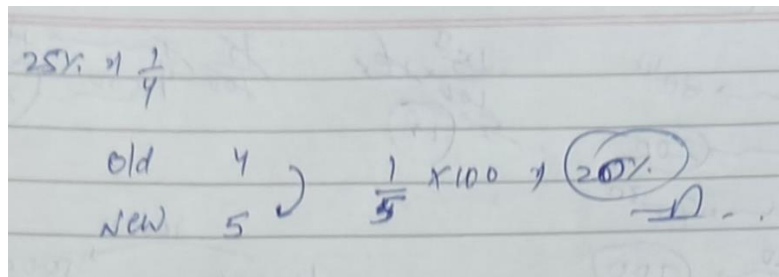 25% ⇒ 1/4
Old 4
New 5 ) 1/5 × 100 ⇒ 20%